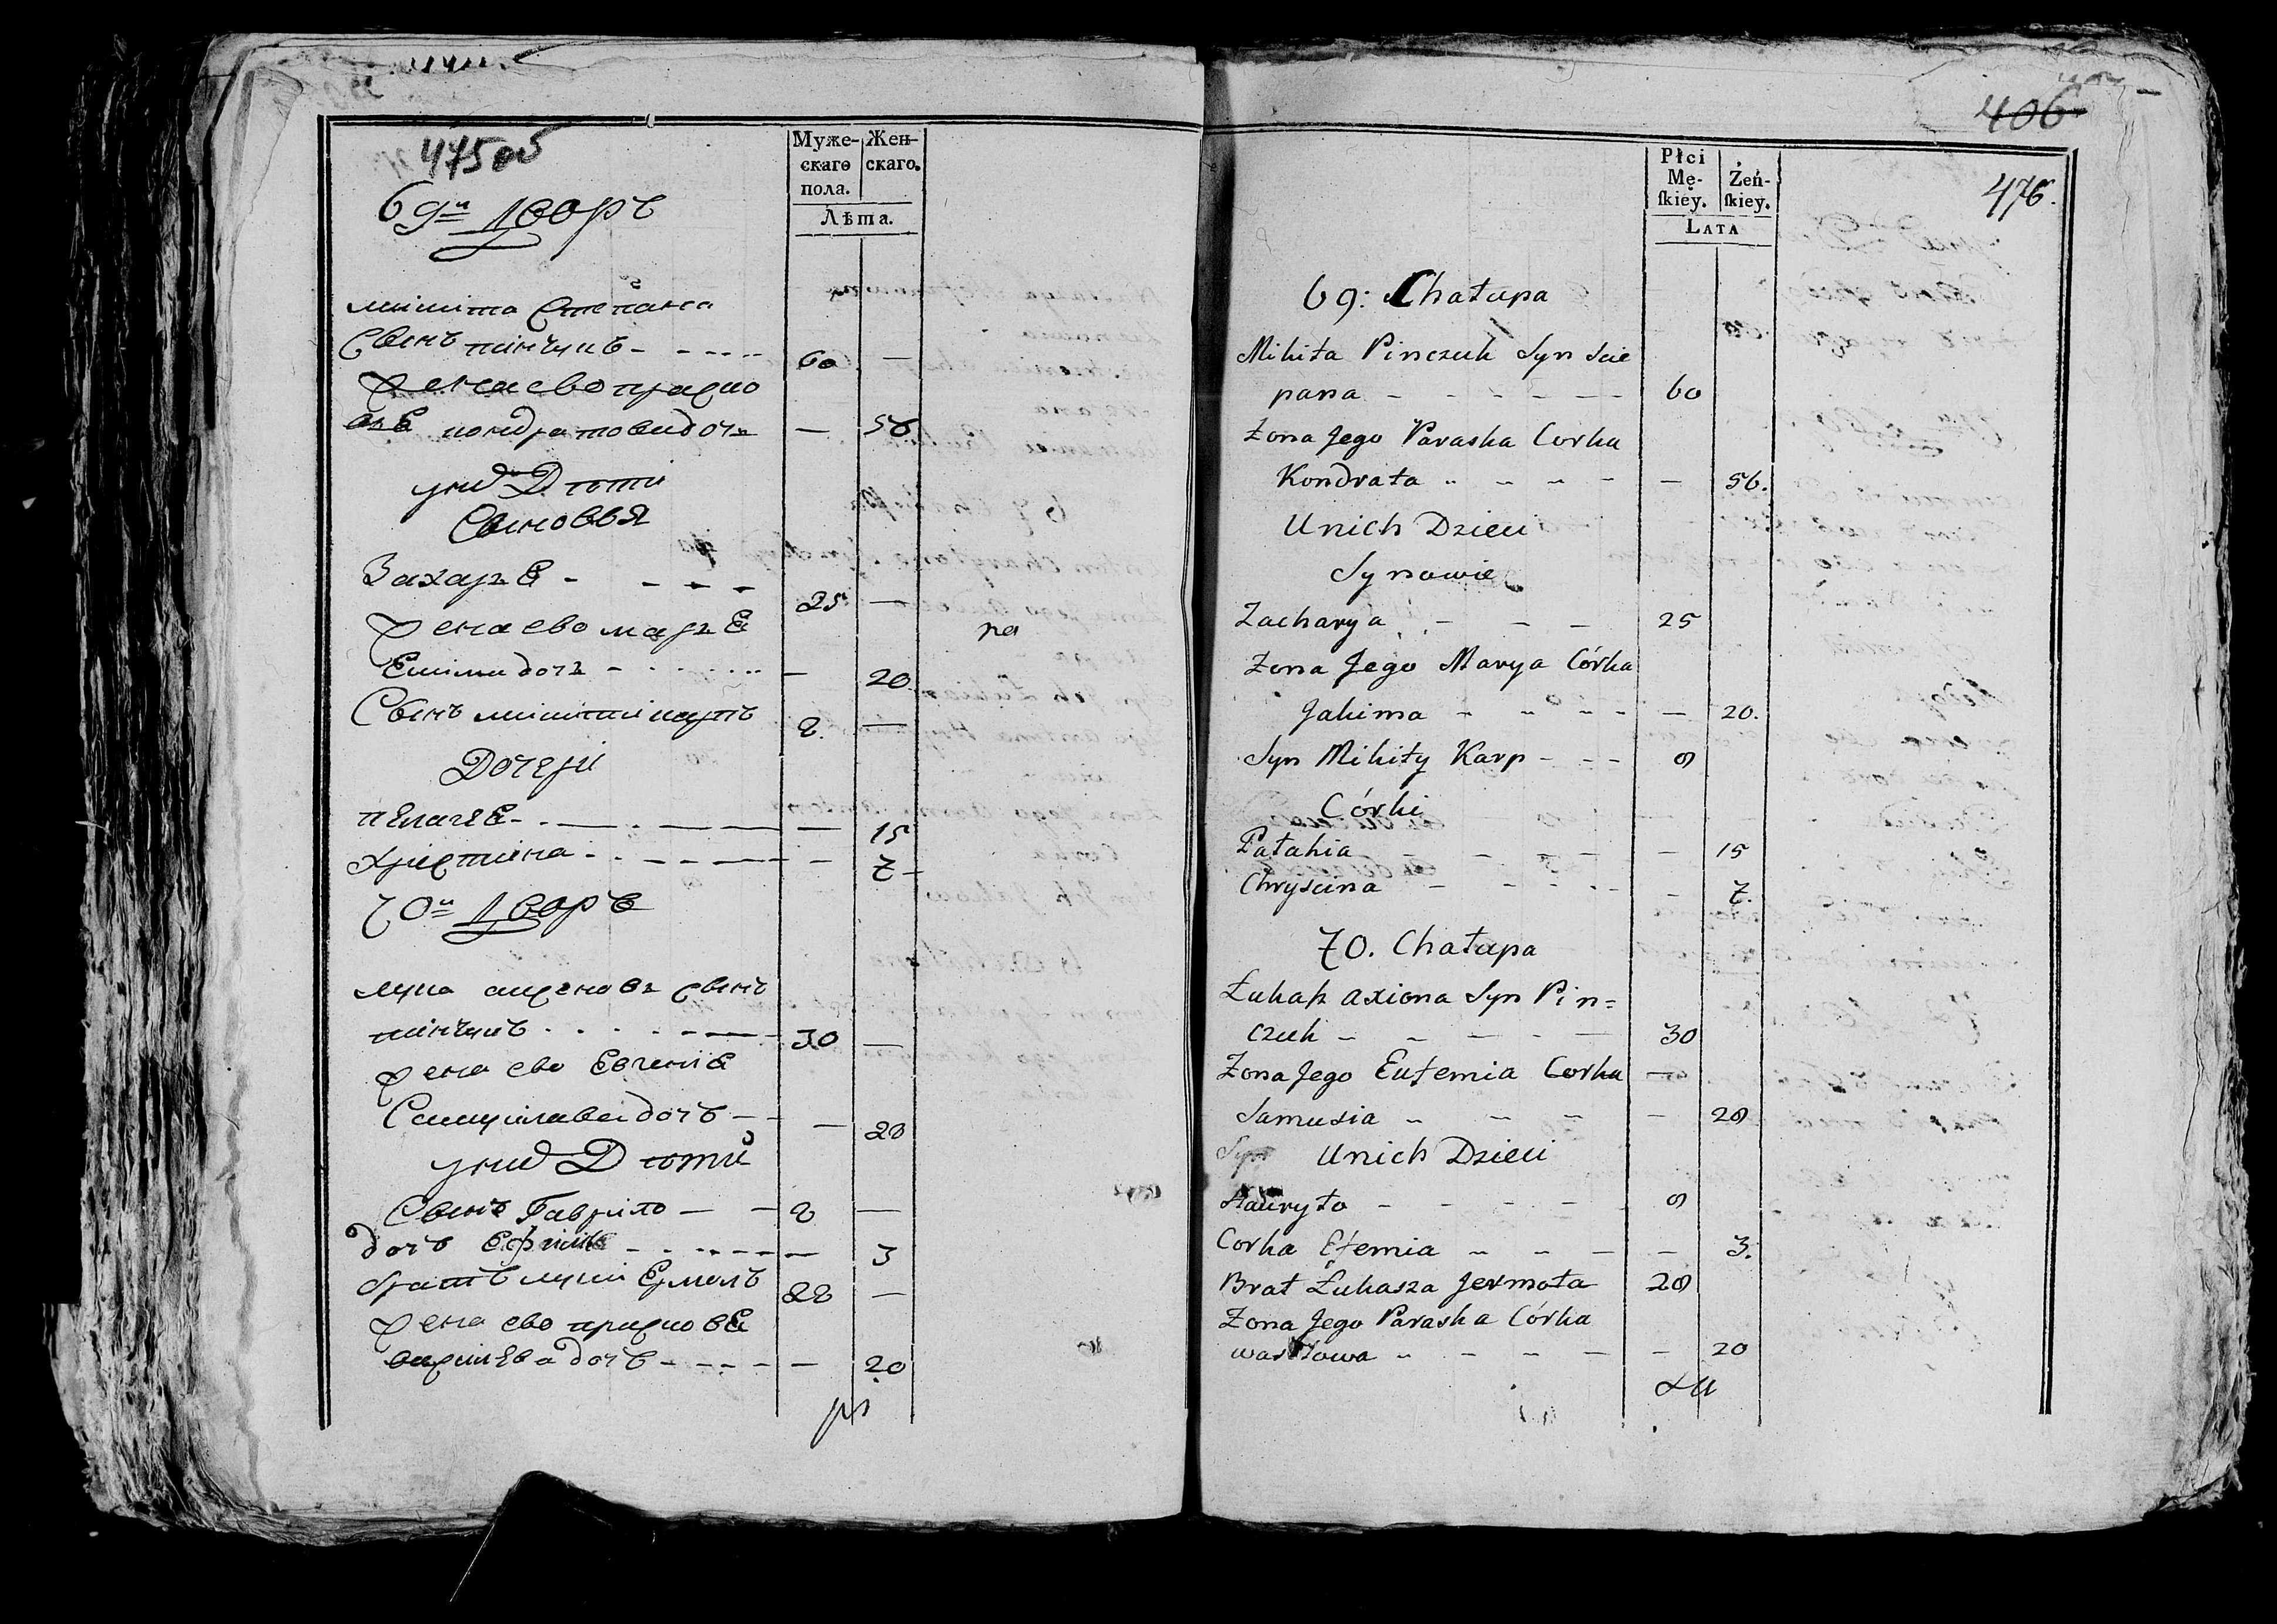 475об
Муже-
скаго
пола.
Жен-
скаго.
Лѣта.
69й Дворъ
микита Степана
Сынъ пинчукъ - - - - - 60 —
Жена ево праско
вья кондратова дочь — 56
у них Дѣти
Сыновья
Захаръя - - - - 25 —
Жена ево маръя
Екима дочь - - - - — 20
Сынъ микити карпъ 8 —
Дочери
пелагея - - — 15
христина - - — 7
70й Дворъ
лука аксеновъ сынъ
пинчукъ - - - - 30 —
Жена ево Евгения
Самуилава дочъ - - — 28
у них Дѣтий
Сынъ Гаврило — 8 —
дочъ Ефимия - - - — 3
братъ луки Ермолъ 28 —
Жена ево прасковя
васильева дочъ - - - — 20
406
476.
Płci
Mę-
ſkiey.
Żeń-
ſkiey.
LATA
69: Chałupa
Mikita Pinczuk Syn Scie
pana - - - - - 60
Żona Jego Paraska Corka
Kondrata - - - - — 56.
Unich Dzieci
Synowie
Zacharya - - - 25
Żona Jego Marya Córka
Jakima - - - - — 20.
Syn Mikity Karp - - - 8
Córki
Pałahia - - - - — 15
Chryscina - - - - — 7.
70. Chałupa
Łukaſz Axiona Syn Pin=
czuk - - - - — 30
Żona Jego Eufemia Corka —
Samusia - - - — 28
Syn Unich Dzieci
Hauryło - - - - - 8
Corka Efemia - - - — 3.
Brat Łukasza Jermoła 28
Żona Jego Paraska Córka
wasilowa - - - - — 20